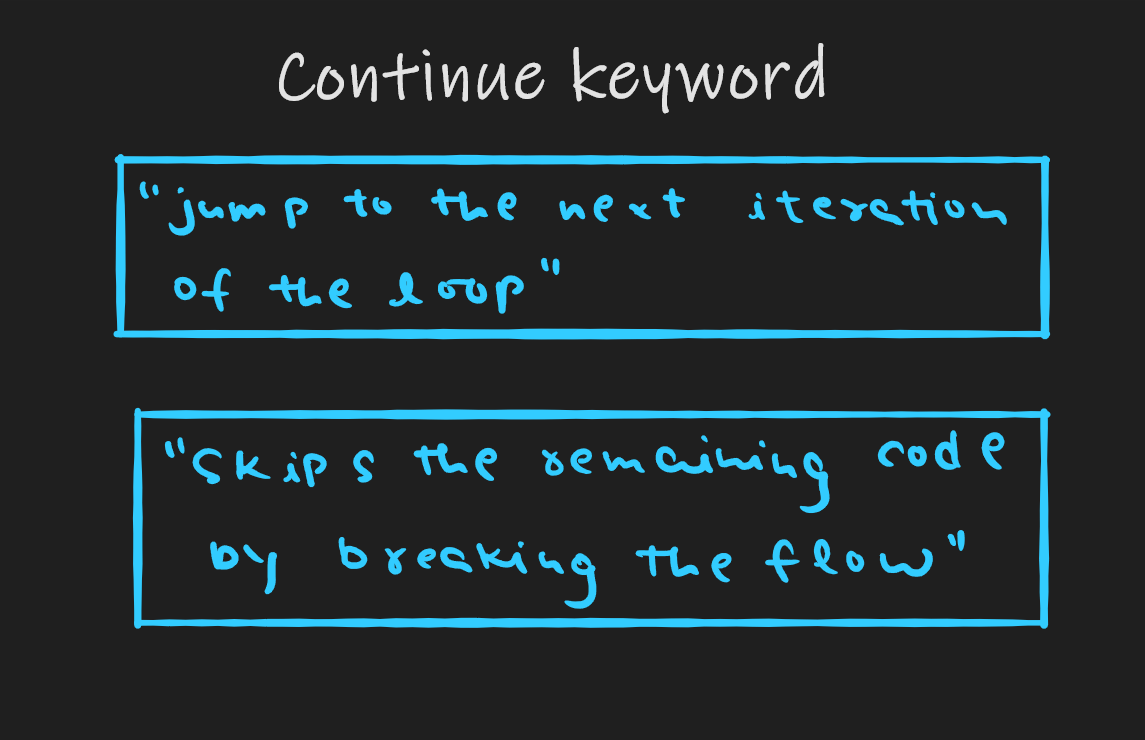 Continue keyword
"jump to the next iteration
of the loop"
"Skips the remaining code
by breaking the flow"